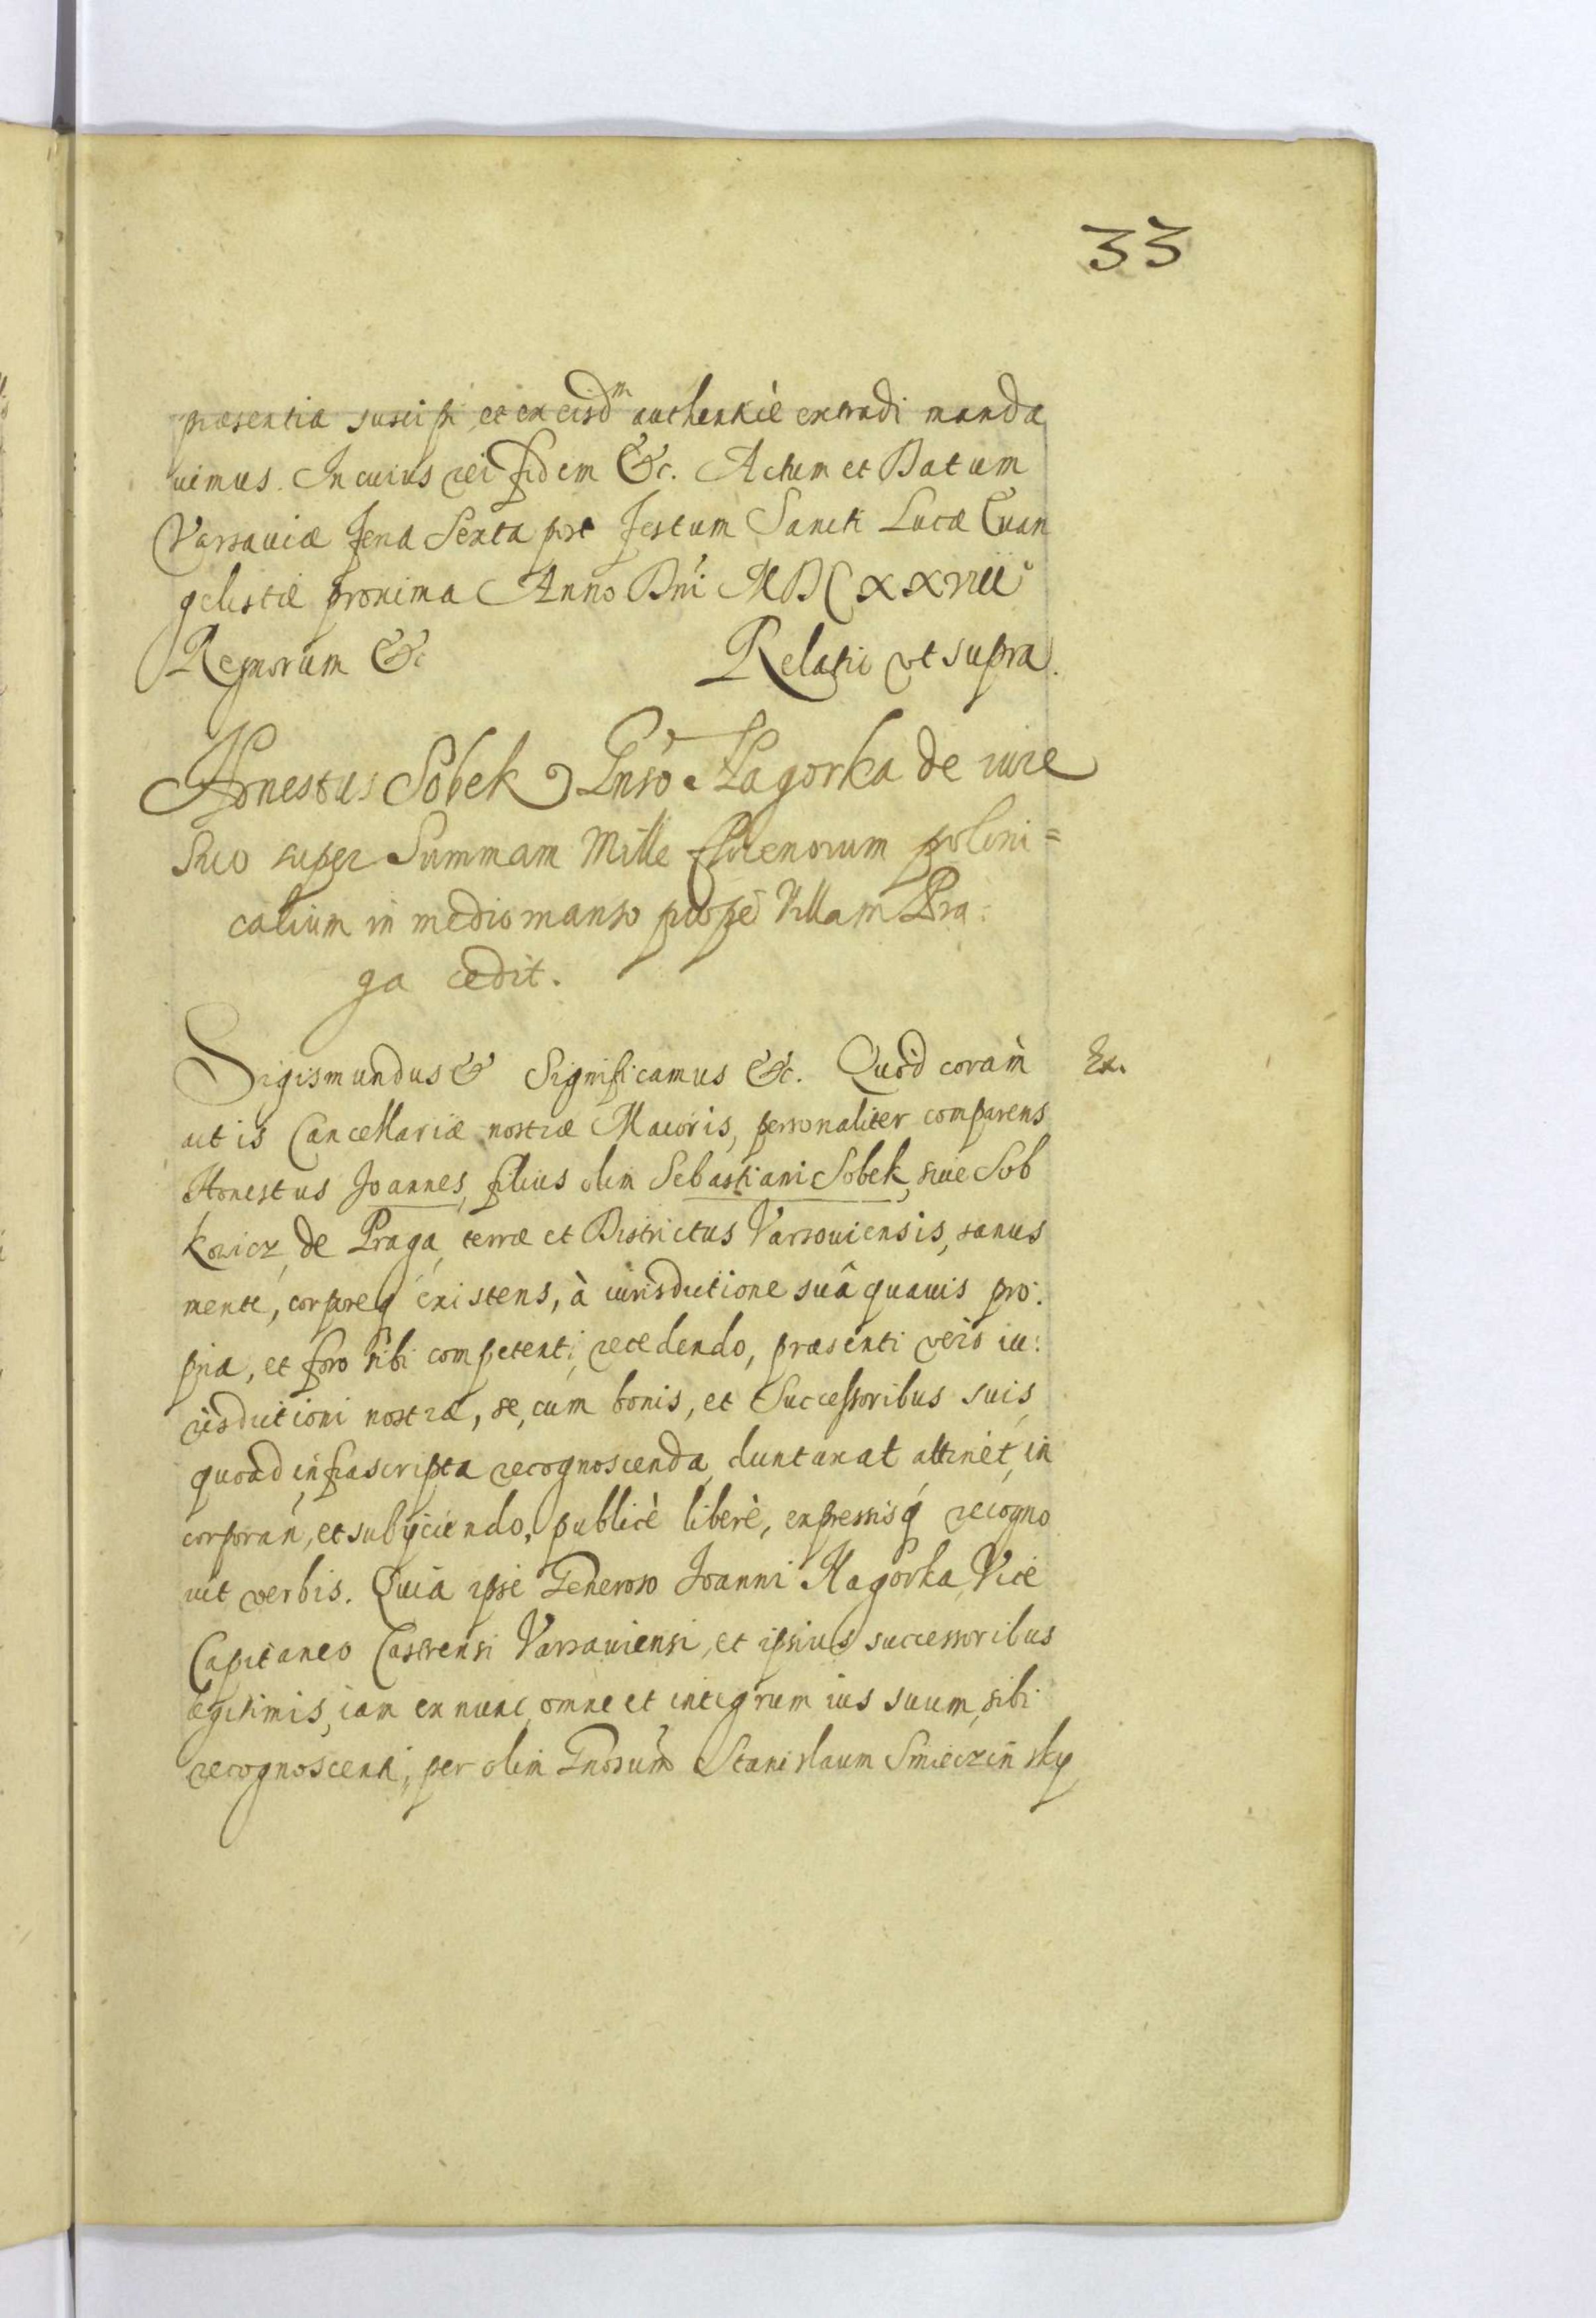 33
præsentia suscipi, et ex eisdm authenticè extradi manda
uimus. In cuius rei fidem &c. Actum et Datum
Varsauiæ feria Sexta post festum Sancti Lucæ Euan
gelistæ proxima Anno Dni MDCxxviii°
Regnorum &c Relatio vt supra.
Honestus Sobek Gnso Nagorka de iure
suo super Summam Mille florenorum poloni=
calium in medio manso prope Villam Pra:
ga cedit.
Sigismundus & Significamus &c. Quòd coràm Ex.
actis Cancellariæ nostræ Maioris, personaliter comparens
Honestus Joannes, filius olim Sebastiani Sobek, siue Sob
kowicz, de Praga, terræ et Districtus Varsouiensis, sanus
mente, corporeq existens, à iurisdictione suâ quauis pro:
pria, et foro sibi competenti, recedendo, præsenti verò iu:
risdictioni nostræ, se, cum bonis, et Successoribus suis,
quoad infrascripta recognoscenda, duntaxat attinet, in
corporan, et subijciendo, publicè liberè, expressisq recogno
uit verbis. Quia ipse Generoso Joanni Nagorka, Vice
Capitaneo Castrensi Varsauiensi, et ipsius successoribus
legitimis, iam ex nunc, omne et integrum ius suum, sibi
recognoscenti, per olim Gnosum Stanislaum Smieczinsky